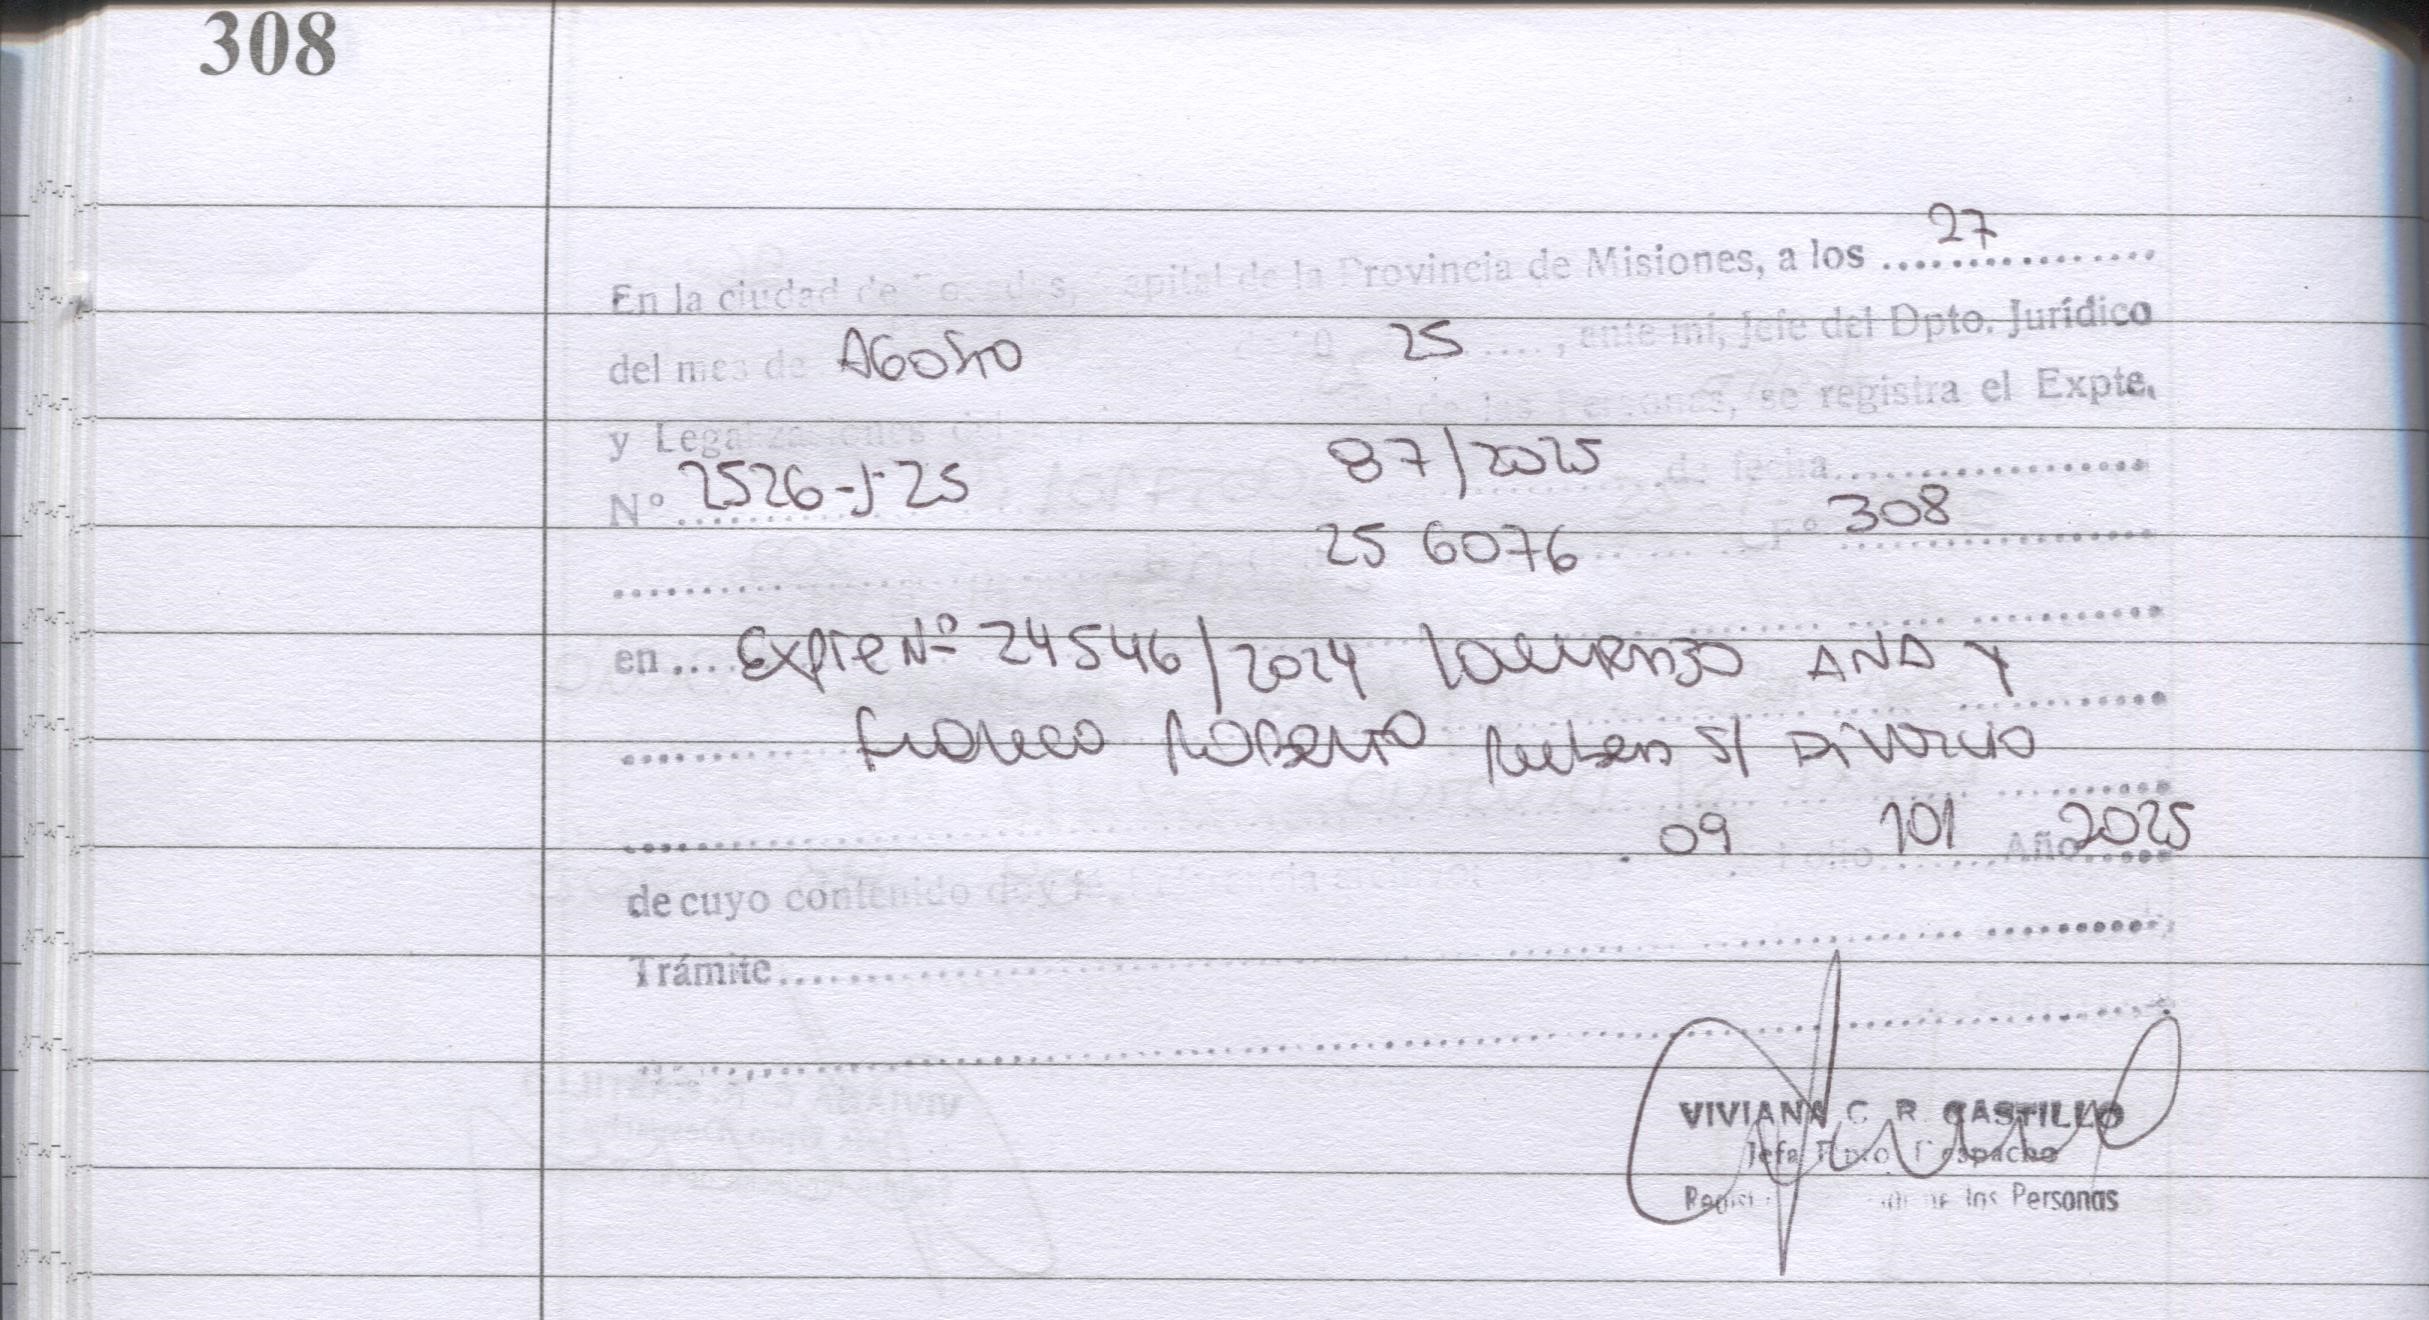 308
En la ciudad de Posadas, capital de la Provincia de Misiones, a los 27
del mes de Agosto 25, ante mi, Jefe del Dpto. Jurídico
y Legalizaciones de las Personas, se registra el Expte.
Nº 2526-J-25 87/2025 de fecha
25 6076 Fº 308
en Expte Nº 24546/2024 ANA Y
Franco Roberto Ruben S/ Divorcio
09 Folio 101 Año 2025
de cuyo contenido doy fe.
Trámite
VIVIANA C. R. CASTILLO
Jefa Dpto. Despacho
de las Personas